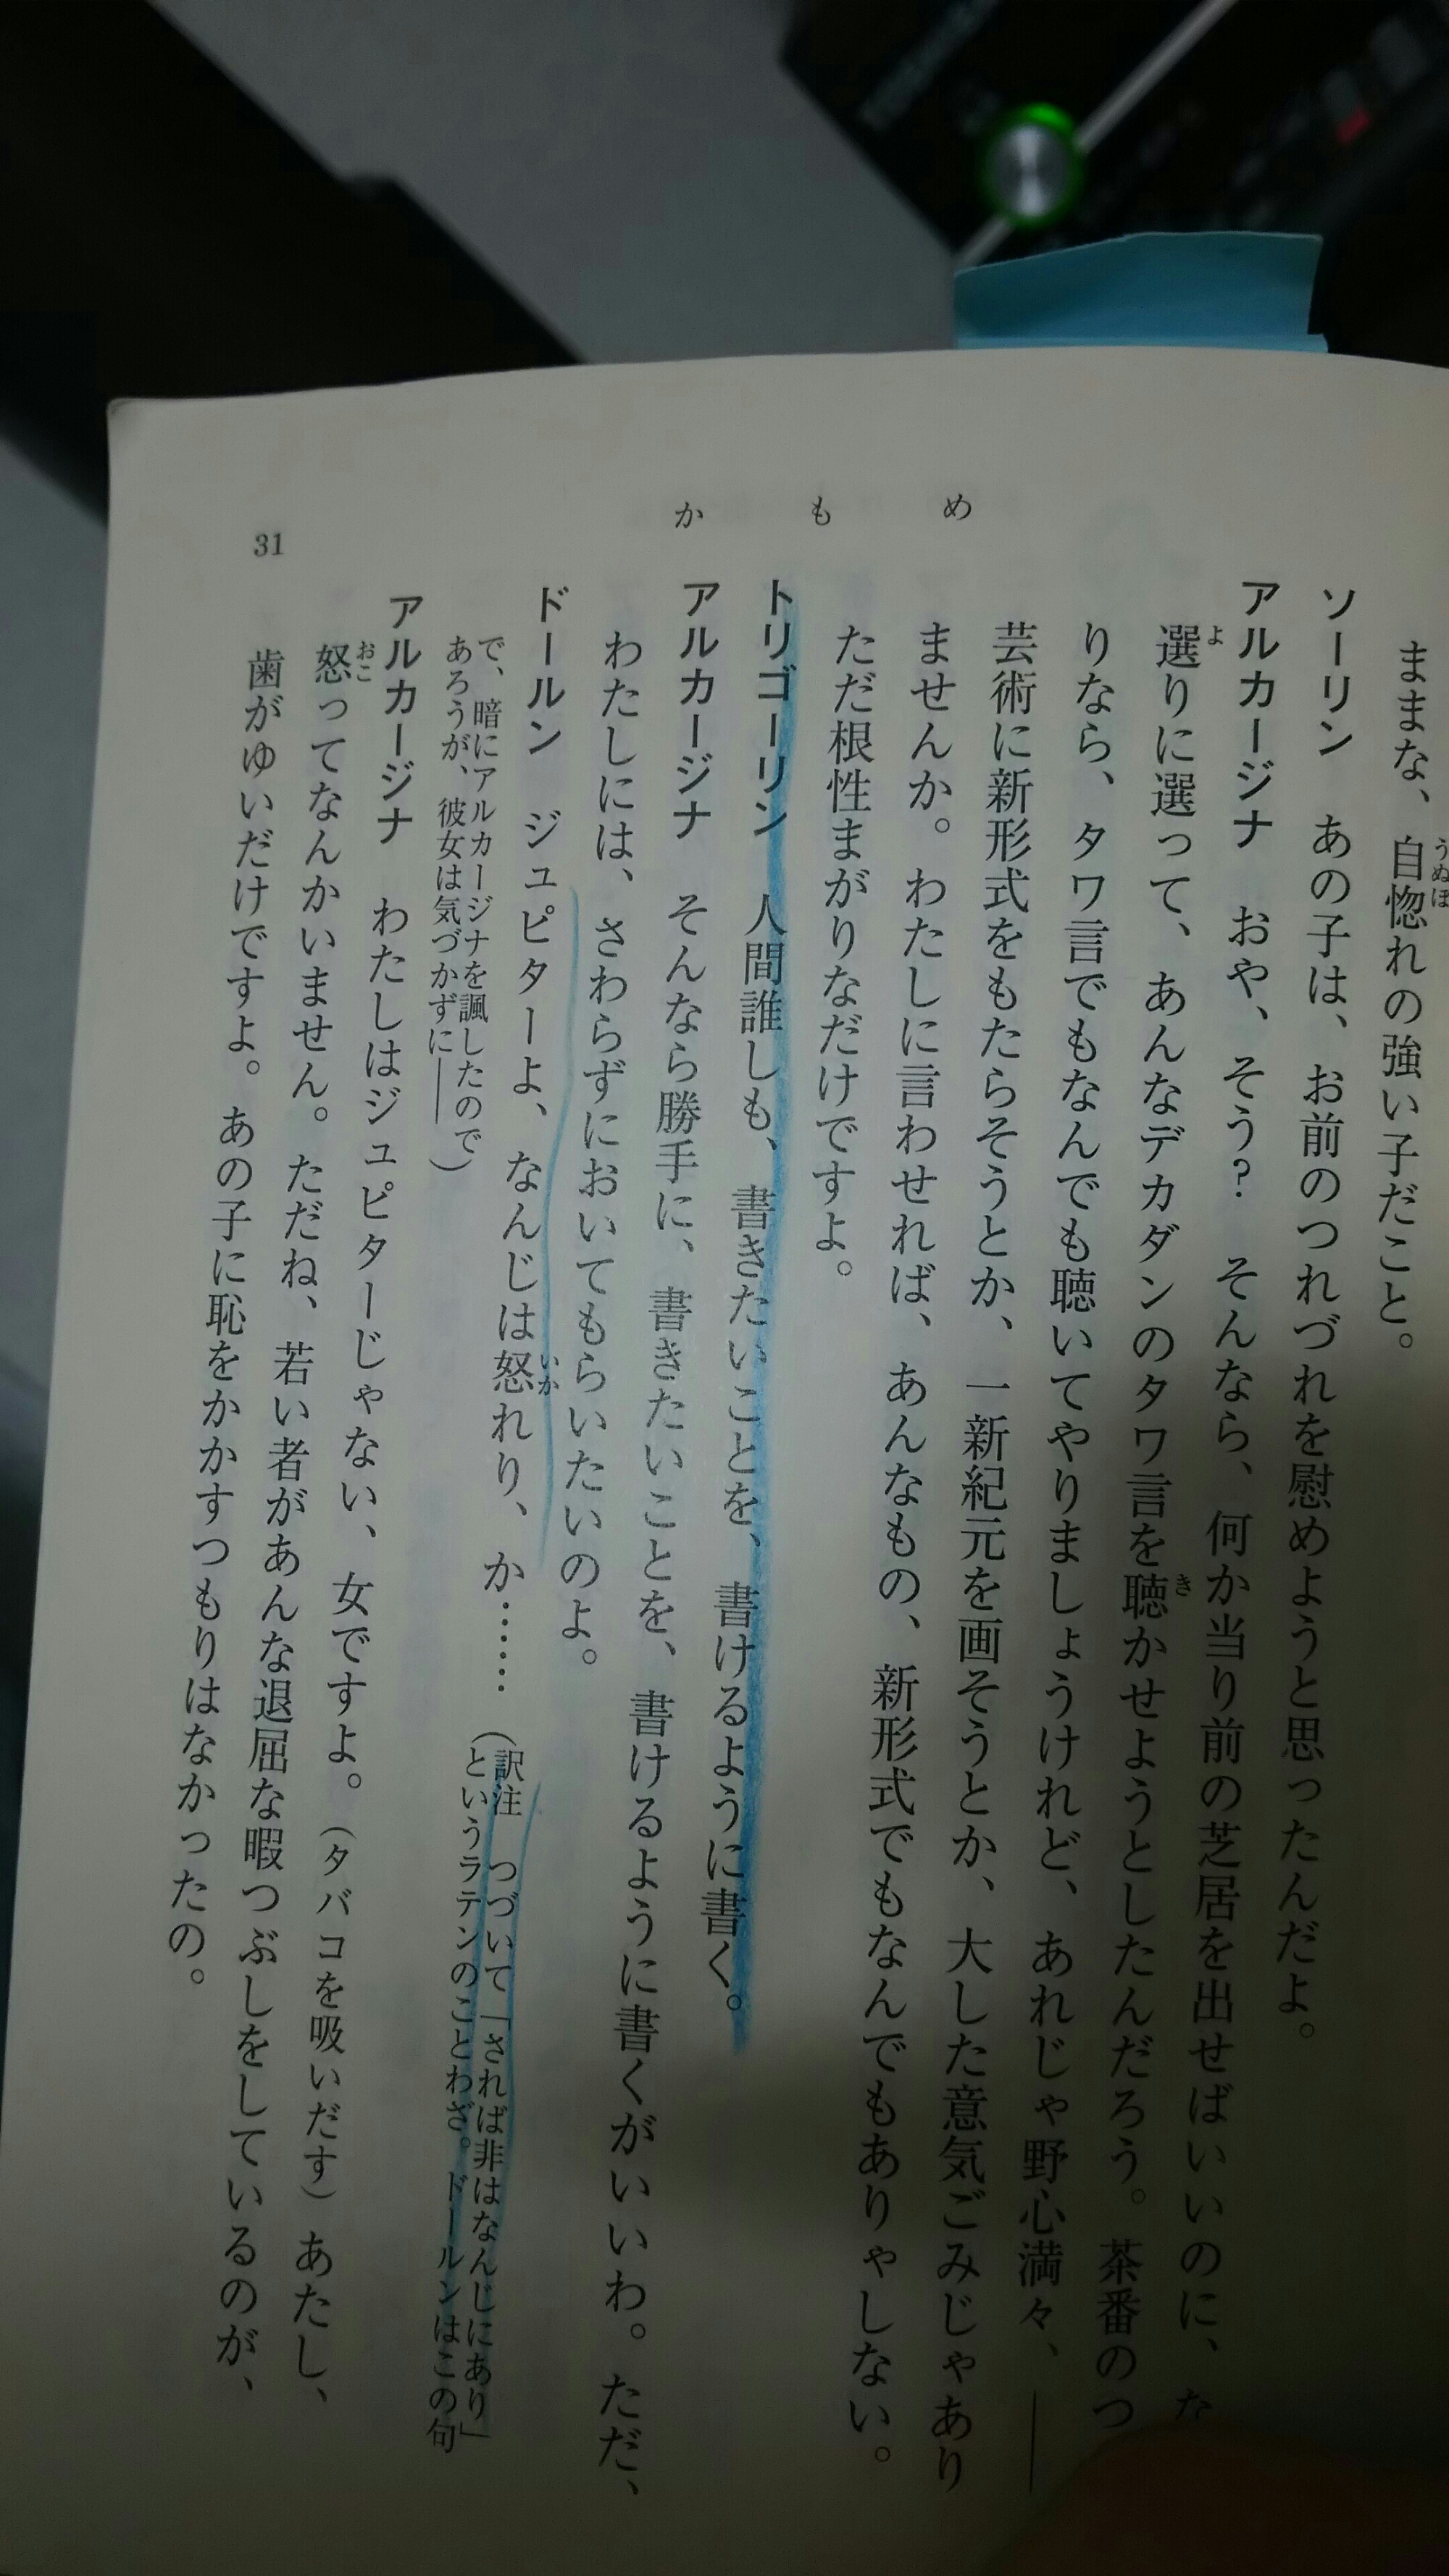 かもめ
ままな、自惚れの強い子だこと。
ソーリン　あの子は、お前のつれづれを慰めようと思ったんだよ。
アルカージナ　おや、そう？　そんなら、何か当り前の芝居を出せばいいのに、な
選りに選って、あんなデカダンのタワ言を聴かせようとしたんだろう。茶番のつ
りなら、タワ言でもなんでも聴いてやりましょうけれど、あれじゃ野心満々、――
芸術に新形式をもたらそうとか、一新紀元を画そうとか、大した意気ごみじゃあり
ませんか。わたしに言わせれば、あんなもの、新形式でもなんでもありゃしない。
ただ根性まがりなだけですよ。
トリゴーリン　人間誰しも、書きたいことを、書けるように書く。
アルカージナ　そんなら勝手に、書きたいことを、書けるように書くがいいわ。ただ、
わたしには、さわらずにおいてもらいたいのよ。
ドールン　ジュピターよ、なんじは怒れり、か……（訳注　つづいて「されば非はなんじにあり」
というラテンのことわざ。ドールンはこの句
で、暗にアルカージナを諷したので
あろうが、彼女は気づかずに――）
アルカージナ　わたしはジュピターじゃない、女ですよ。（タバコを吸いだす）あたし、
怒ってなんかいません。ただね、若い者があんな退屈な暇つぶしをしているのが、
歯がゆいだけですよ。あの子に恥をかかすつもりはなかったの。
31